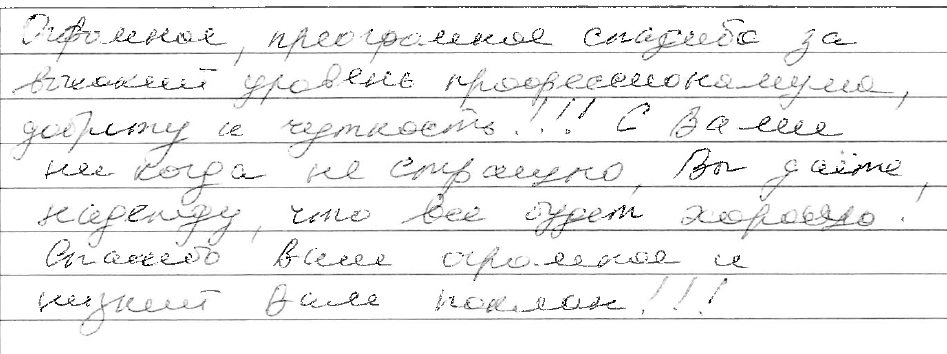 Огромное, преогромное спасибо за
высокий уровень профессионализма,
доброту и чуткость!!! С Вами
ни когда не страшно, Вы даёте,
надежду, что все будет хорошо!
Спасибо Вам огромное и
низкий Вам поклон!!!